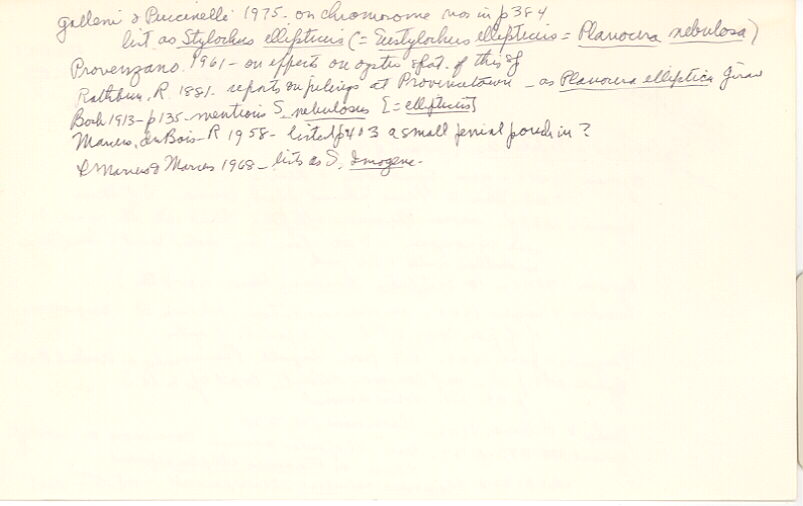 Galleni & Puccinelli 1975 - on chromosome nos in p 384
list as Stylochus ellipticus (= Eustylochus ellipticus = Planocera nebulosa)
Provenzano 1961 - on effects on oyster spat. of this sp
Rathbun, R. 1881 - reports on pilings at Provincetown - as Planocera elliptica Girard
Bock 1913 - p 135 - mentions S. nebulosus [= ellipticus]
Marcus, du Bois - R 1958 - lists p 403 a small penial pouch in ?
& Marcus & Marcus 1968 - lists as S. Imogene -